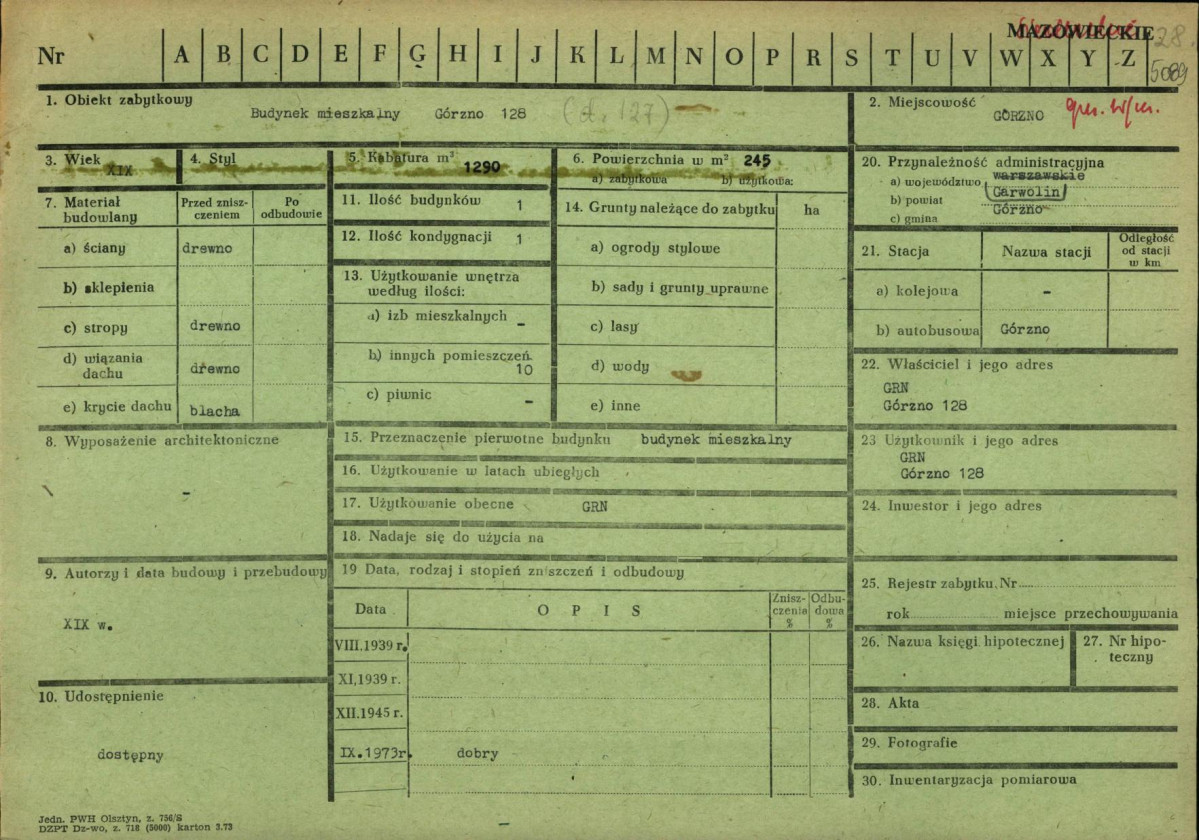 MAZOWIECKIE
28
5089
Nr A B C D E F G H I J K L M N O P R S T U V W X Y Z
1. Obiekt zabytkowy
Budynek mieszkalny Górzno 128 (d. 127)
2. Miejscowość
GÓRZNO
3. Wiek
XIX
4. Styl
5. Kubatura m³
1290
6. Powierzchnia w m² 245
a) zabytkowa b) użytkowa:
20. Przynależność administracyjna
a) województwo warszawskie
b) powiat Garwolin
c) gmina Górzno
7. Materiał budowlany
Przed zniszczeniem
Po odbudowie
a) ściany drewno
b) sklepienia
c) stropy drewno
d) wiązania dachu drewno
e) krycie dachu blacha
11. Ilość budynków 1
12. Ilość kondygnacji 1
13. Użytkowanie wnętrza
według ilości:
a) izb mieszkalnych -
b) innych pomieszczeń
10
c) piwnic -
14. Grunty należące do zabytku ha
a) ogrody stylowe
b) sady i grunty uprawne
c) lasy
d) wody
e) inne
21. Stacja Nazwa stacji Odległość od stacji w km
a) kolejowa -
b) autobusowa Górzno
22. Właściciel i jego adres
GRN
Górzno 128
8. Wyposażenie architektoniczne
-
15. Przeznaczenie pierwotne budynku budynek mieszkalny
16. Użytkowanie w latach ubiegłych
17. Użytkowanie obecne GRN
18. Nadaje się do użycia na
23 Użytkownik i jego adres
GRN
Górzno 128
24. Inwestor i jego adres
9. Autorzy i data budowy i przebudowy
XIX w.
19 Data, rodzaj i stopień zniszczeń i odbudowy
Data OPIS Zniszczenia % Odbudowa %
VIII.1939 r.
XI,1939 r.
XII.1945 r.
IX.1973r. dobry
25. Rejestr zabytku. Nr
rok miejsce przechowywania
26. Nazwa księgi hipotecznej
27. Nr hipoteczny
10. Udostępnienie
dostępny
28. Akta
29. Fotografie
30. Inwentaryzacja pomiarowa
Jedn. PWH Olsztyn, z. 756/S
DZPT Dz-wo, z. 718 (5000) karton 3.73